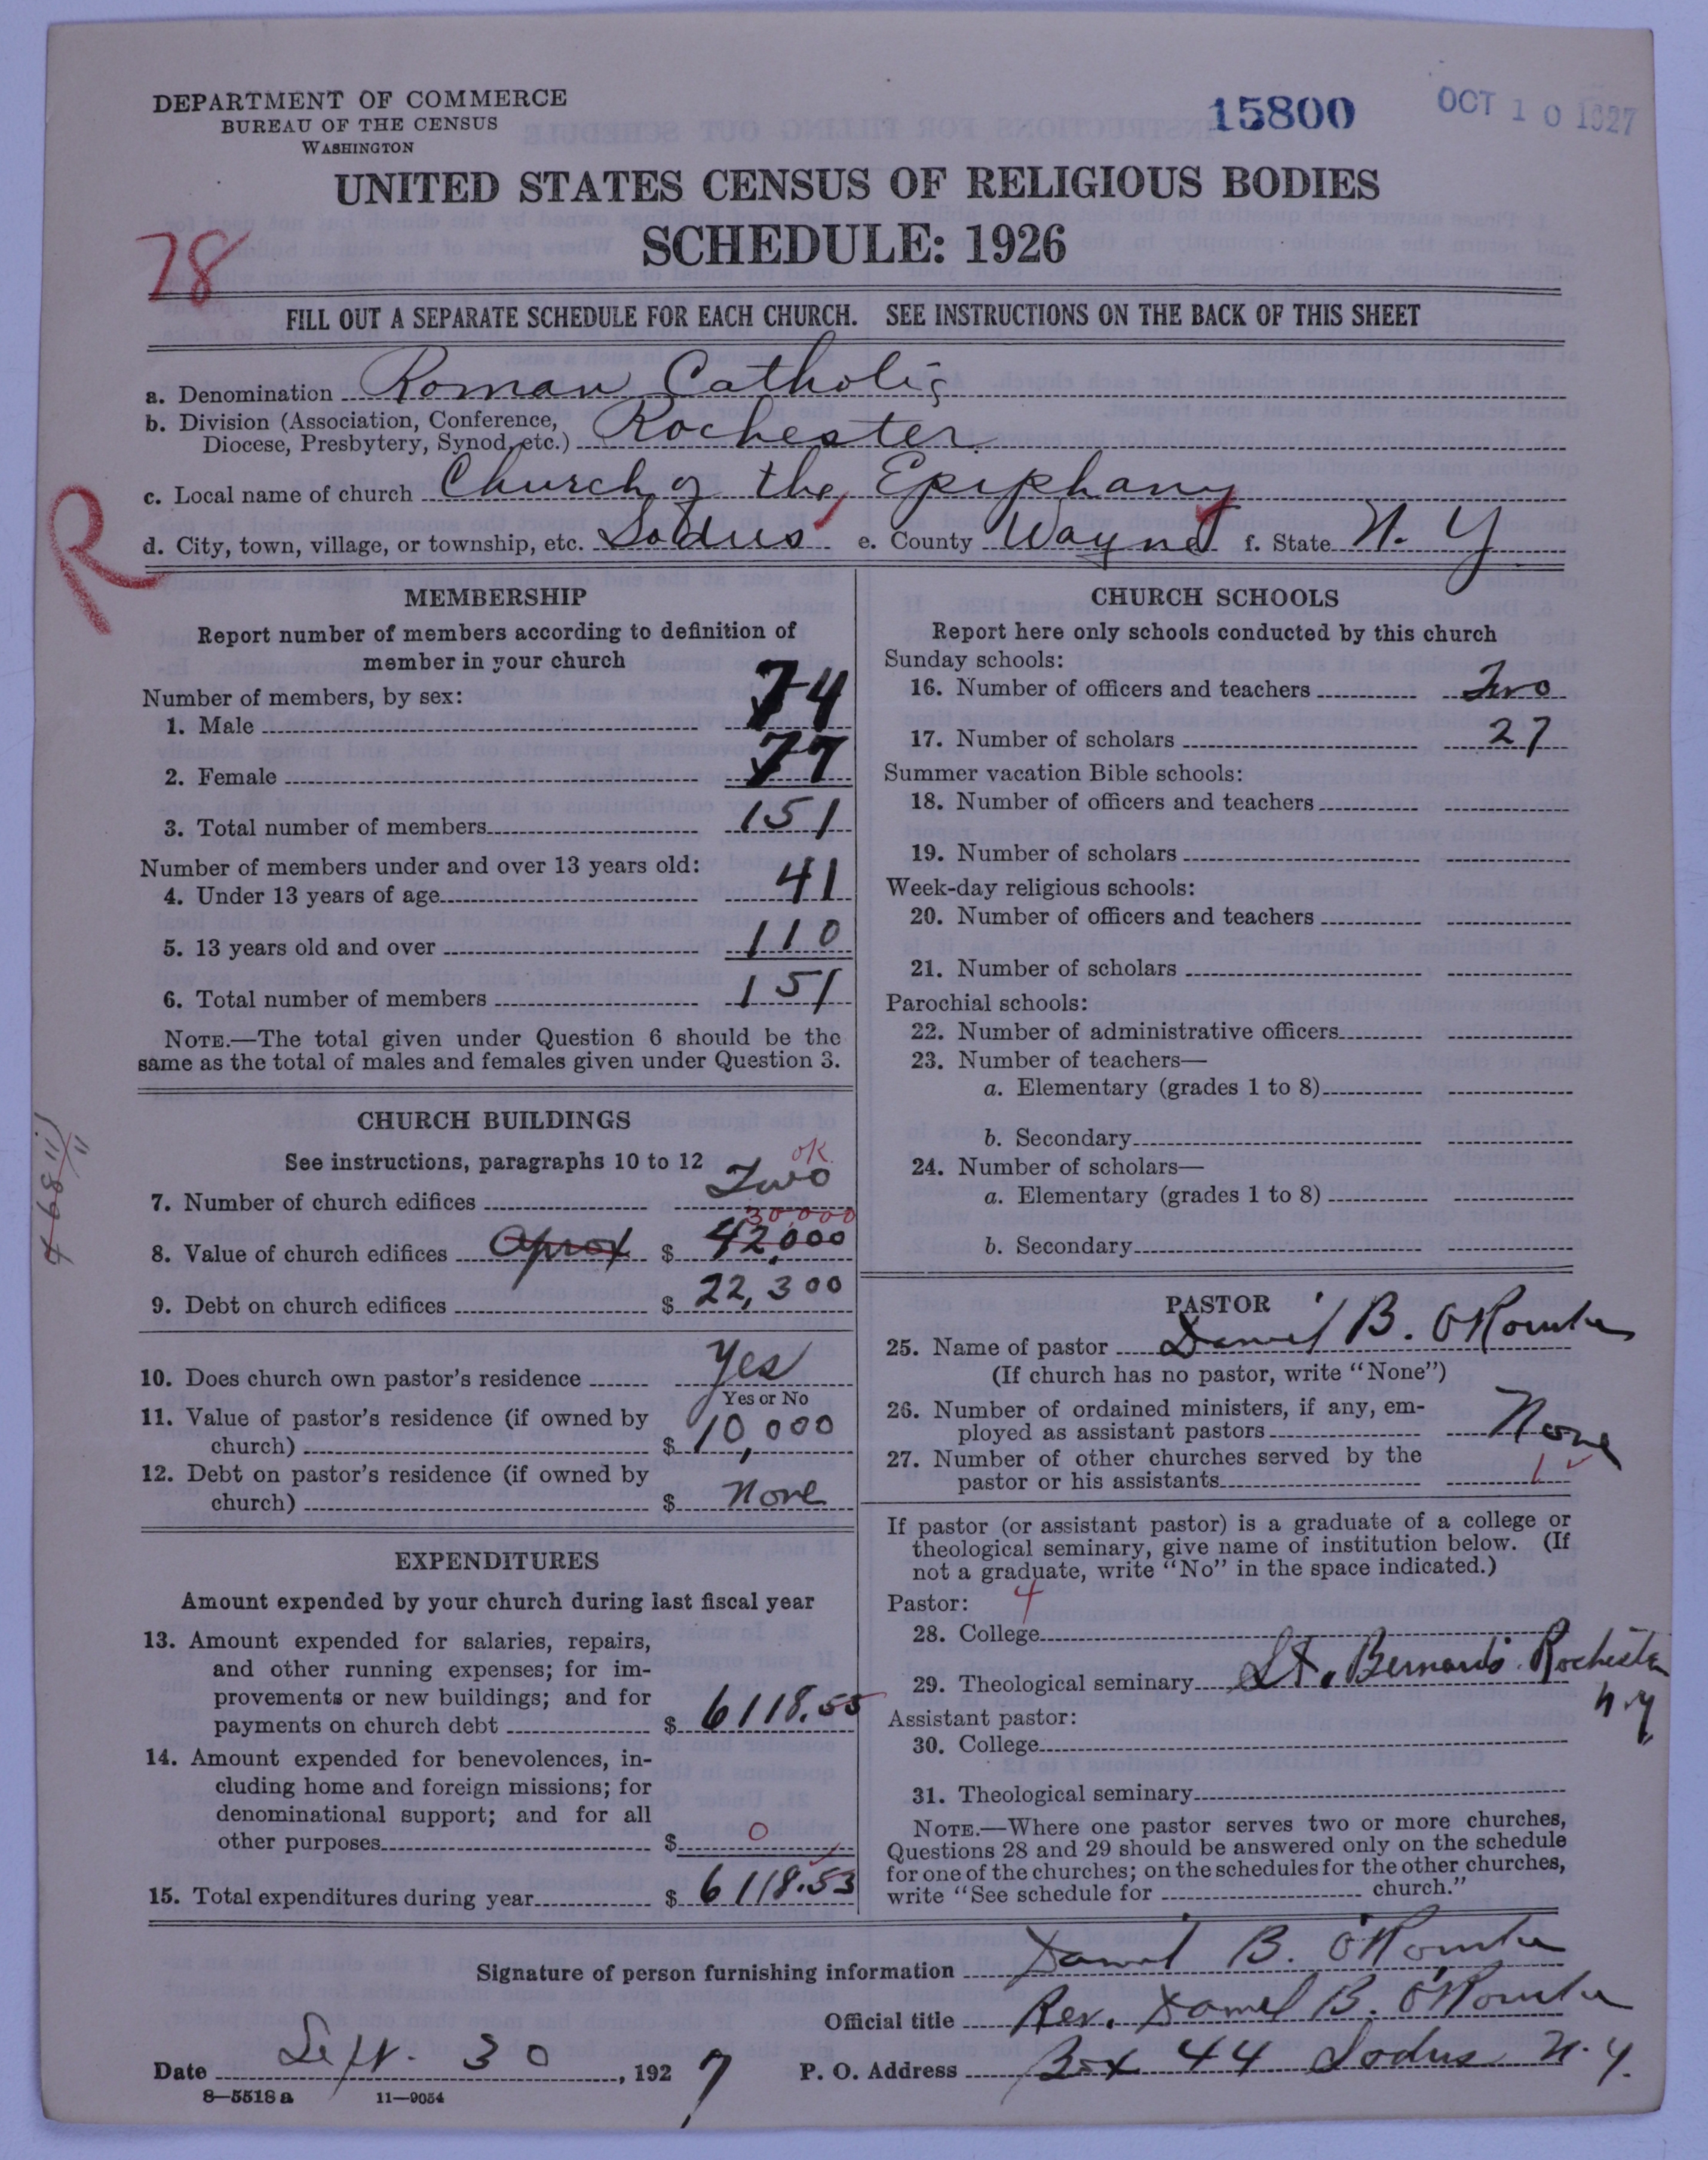 DEPARTMENT OF COMMERCE
BUREAU OF THE CENSUS
WASHINGTON
15800
OCT 10 1927
UNITED STATES CENSUS OF RELIGIOUS BODIES
SCHEDULE: 1926
78
FILL OUT A SEPARATE SCHEDULE FOR EACH CHURCH. SEE INSTRUCTIONS ON THE BACK OF THIS SHEET
a. Denomination Roman Catholic
b. Division (Association, Conference,
Diocese, Presbytery, Synod, etc.) Rochester
c. Local name of church Church of the Epiphany
d. City, town, village, or township, etc. Sodus e. County Wayne f. State N. Y.
R
MEMBERSHIP
Report number of members according to definition of
member in your church
Number of members, by sex:
1. Male 74
2. Female 77
3. Total number of members 151
Number of members under and over 13 years old:
4. Under 13 years of age 41
5. 13 years old and over 110
6. Total number of members 151
NOTE.—The total given under Question 6 should be the
same as the total of males and females given under Question 3.
CHURCH BUILDINGS
See instructions, paragraphs 10 to 12
OK
7. Number of church edifices Two
30,000
8. Value of church edifices Aprox $ 42,000
9. Debt on church edifices $ 22,300
10. Does church own pastor's residence Yes
Yes or No
11. Value of pastor's residence (if owned by
church) $ 10,000
12. Debt on pastor's residence (if owned by
church) $ None
EXPENDITURES
Amount expended by your church during last fiscal year
13. Amount expended for salaries, repairs,
and other running expenses; for im-
provements or new buildings; and for
payments on church debt $ 6118.55
14. Amount expended for benevolences, in-
cluding home and foreign missions; for
denominational support; and for all
other purposes $ 0
15. Total expenditures during year $ 6118.53
CHURCH SCHOOLS
Report here only schools conducted by this church
Sunday schools:
16. Number of officers and teachers Two
17. Number of scholars 27
Summer vacation Bible schools:
18. Number of officers and teachers
19. Number of scholars
Week-day religious schools:
20. Number of officers and teachers
21. Number of scholars
Parochial schools:
22. Number of administrative officers
23. Number of teachers—
a. Elementary (grades 1 to 8)
b. Secondary
24. Number of scholars—
a. Elementary (grades 1 to 8)
b. Secondary
PASTOR
25. Name of pastor Daniel B. O'Rourke
(If church has no pastor, write "None")
26. Number of ordained ministers, if any, em-
ployed as assistant pastors None
27. Number of other churches served by the
pastor or his assistants 1
If pastor (or assistant pastor) is a graduate of a college or
theological seminary, give name of institution below. (If
not a graduate, write "No" in the space indicated.)
Pastor: 4
28. College
29. Theological seminary St. Bernard's Rochester
N.Y.
Assistant pastor:
30. College
31. Theological seminary
NOTE.—Where one pastor serves two or more churches,
Questions 28 and 29 should be answered only on the schedule
for one of the churches; on the schedules for the other churches,
write "See schedule for church."
Signature of person furnishing information Daniel B. O'Rourke
Official title Rev. Daniel B. O'Rourke
Date Sept. 30, 1927 P. O. Address Box 44 Sodus N. Y.
8—5518 a 11—9054